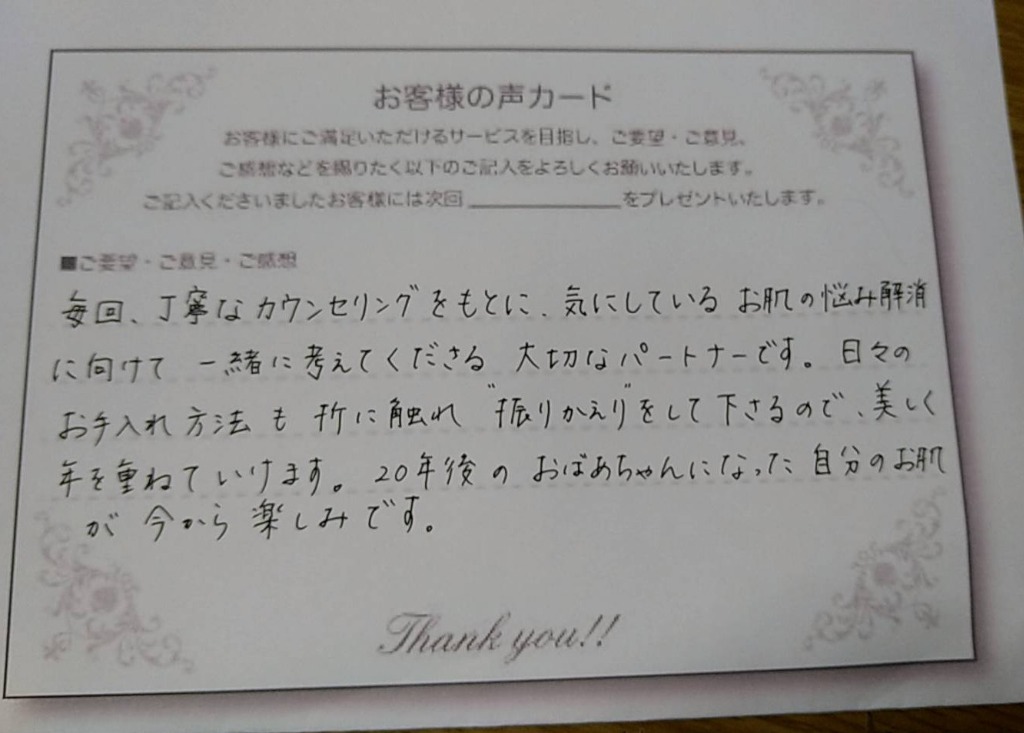 お客様の声カード
お客様にご満足いただけるサービスを目指し、ご要望・ご意見、
ご感想などを賜りたく以下のご記入をよろしくお願いいたします。
ご記入くださいましたお客様には次回＿＿＿＿＿＿＿＿をプレゼントいたします。
■ご要望・ご意見・ご感想
毎回、丁寧なカウンセリングをもとに、気にしているお肌の悩み解消
に向けて一緒に考えてくださる大切なパートナーです。日々の
お手入れ方法も折に触れ"振りかえり"をして下さるので、美しく
年を重ねていけます。20年後のおばあちゃんになった自分のお肌
が今から楽しみです。
Thank you!!